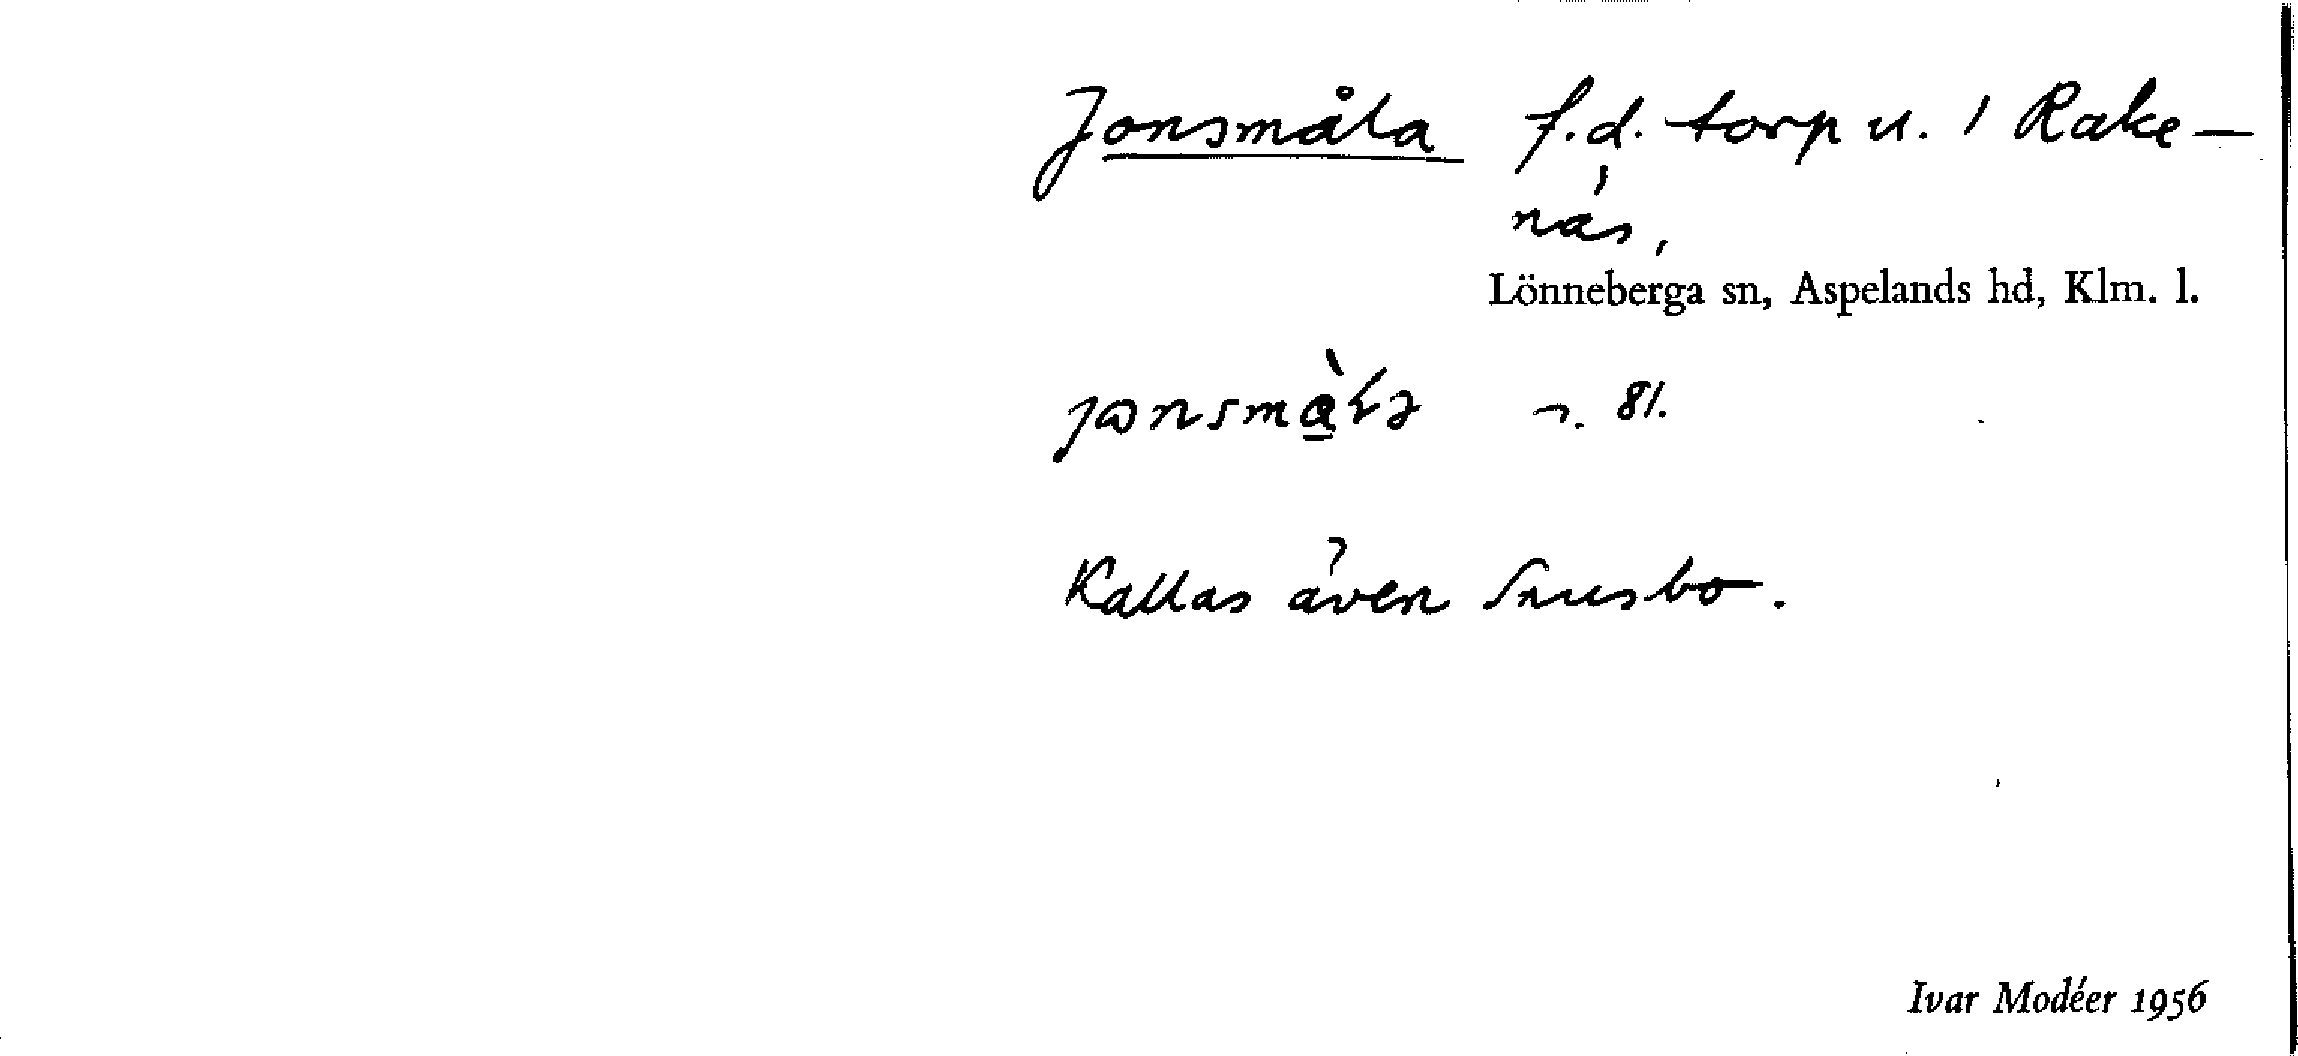 Jonsmåla f.d. torp u. 1 Rake-
näs,
Lönneberga sn, Aspelands hd, Klm. l.
81.
Kallas även Snusbo.
Ivar Modéer 1956